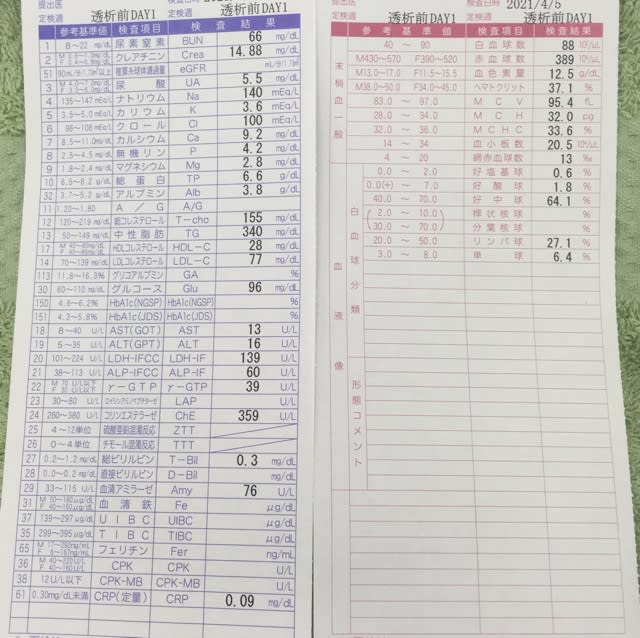 提出医
定検週 透析前DAY1 透析前DAY1
参考基準値 検査項目 検査結果
1 8～22 mg/dL 尿素窒素 BUN 66 mg/dL
2 クレアチニン Crea 14.88 mg/dL
51 推算糸球体濾過量 eGFR
3 尿酸 UA 5.5 mg/dL
4 135～147 mEq/L ナトリウム Na 140 mEq/L
5 3.5～5.0 mEq/L カリウム K 3.6 mEq/L
6 98～108 mEq/L クロール Cl 100 mEq/L
7 8.5～11.0mg/dL カルシウム Ca 9.2 mg/dL
8 2.5～4.5 mg/dL 無機リン P 4.2 mg/dL
9 1.8～2.4 mg/dL マグネシウム Mg 2.8 mg/dL
10 6.5～8.2 g/dL 総蛋白 TP 6.6 g/dL
32 3.7～5.2 g/dL アルブミン Alb 3.8 g/dL
11 1.20～1.80 A／G A/G
12 120～219 mg/dL 総コレステロール T－cho 155 mg/dL
13 50～149 mg/dL 中性脂肪 TG 340 mg/dL
17 HDLコレステロール HDL－C 28 mg/dL
14 70～139 mg/dL LDLコレステロール LDL－C 77 mg/dL
113 11.8～16.3% グリコアルブミン GA %
30 60～110 mg/dL グルコース Glu 96 mg/dL
150 4.6～6.2% HbA1c(NGSP) HbA1c(NGSP) %
151 4.3～5.8% HbA1c(JDS) HbA1c(JDS) %
18 8～40 U/L AST(GOT) AST 13 U/L
19 5～35 U/L ALT(GPT) ALT 16 U/L
20 101～224 U/L LDH-IFCC LDH-IF 139 U/L
21 38～113 U/L ALP-IFCC ALP-IF 60 U/L
22 M 70 U/L以下 F 30 U/L以下 γ－GTP γ－GTP 39 U/L
23 30～80 U/L ロイシンアミノペプチターゼ LAP U/L
24 260～380 U/L コリンエステラーゼ ChE 359 U/L
25 4～12単位 硫酸亜鉛混濁反応 ZTT
26 0～4単位 チモール混濁反応 TTT
27 0.2～1.2 mg/dL 総ビリルビン T－Bil 0.3 mg/dL
28 0.0～0.2 mg/dL 直接ビリルビン D－Bil mg/dL
29 33～115 U/L 血清アミラーゼ Amy 76 U/L
31 血清鉄 Fe μg/dL
37 139～297 μg/dL UIBC UIBC μg/dL
35 299～395 μg/dL TIBC TIBC μg/dL
65 フェリチン Fer ng/mL
36 CPK CPK U/L
38 12U/L以下 CPK-MB CPK-MB U/L
61 0.30mg/dL未満 CRP(定量) CRP 0.09 mg/dL
提出医 検査日時 2021/4/5
定検週 透析前DAY1 透析前DAY1
参考基準値 検査項目 検査結果
末梢血一般
40 ～ 90 白血球数 88 10²/μL
M430～570 F390～520 赤血球数 389 10⁴/μL
M13.0～17.0 F11.5～15.5 血色素量 12.5 g/dL
M38.0～50.0 F34.0～45.0 ヘマトクリット 37.1 %
83.0 ～ 97.0 MCV 95.4 fL
28.0 ～ 34.0 MCH 32.0 pg
32.0 ～ 36.0 MCHC 33.6 %
14 ～ 34 血小板数 20.5 10⁴/μL
4 ～ 20 網赤血球数 13 ‰
血液像
白血球分類
0.0 ～ 2.0 好塩基球 0.6 %
0.0(+) ～ 7.0 好酸球 1.8 %
40.0 ～ 70.0 好中球 64.1 %
2.0 ～ 10.0 桿状核球 %
30.0 ～ 70.0 分葉核球 %
20.0 ～ 50.0 リンパ球 27.1 %
3.0 ～ 8.0 単球 6.4 %
形態コメント